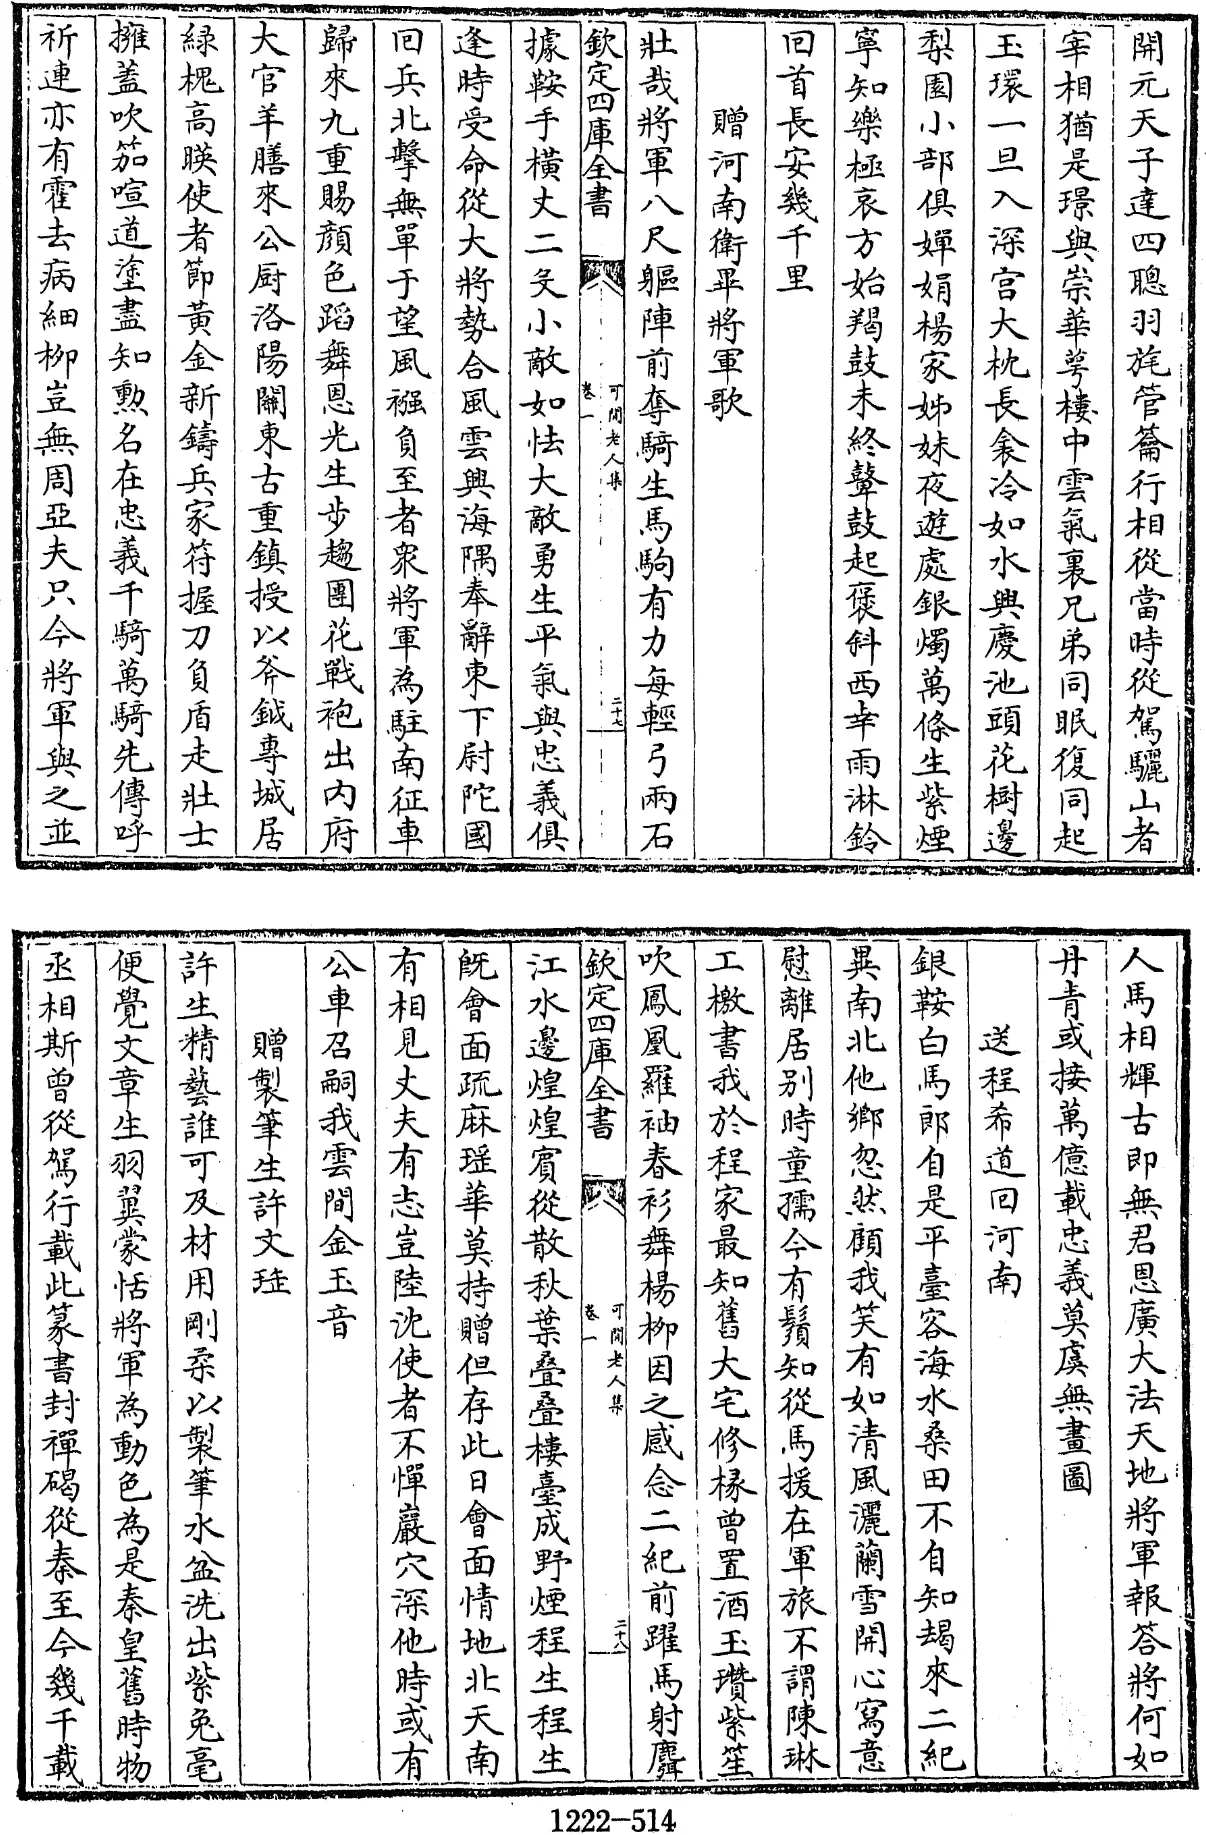 開元天子達四聰羽旄管籥行相從當時從駕驪山者
宰相猶是璟與崇華萼樓中雲氣裏兄弟同眠復同起
玉環一旦入深宫大枕長衾冷如水興慶池頭花樹邊
梨園小部俱嬋娟楊家姊妹夜遊處銀燭萬條生紫煙
寧知樂極哀方始羯鼓未終鼙鼓起褒斜西幸雨淋鈴
回首長安幾千里
贈河南衛畢將軍歌
壯哉將軍八尺軀陣前奪騎生馬駒有力每輕弓兩石
欽定四庫全書
可閒老人集
卷一
二十七
據鞍手横丈二殳小敵如怯大敵勇生平氣與忠義俱
逢時受命從大將勢合風雲興海隅奉辭東下尉陀國
回兵北擊無單于望風襁負至者衆將軍為駐南征車
歸來九重賜顔色蹈舞恩光生步趨團花戰袍出内府
大官羊膳來公厨洛陽關東古重鎮授以斧鉞專城居
緑槐高暎使者節黄金新鑄兵家符握刀負盾走壯士
擁蓋吹笳喧道塗盡知勲名在忠義千騎萬騎先傳呼
祈連亦有霍去病細柳豈無周亞夫只今將軍與之並
人馬相輝古即無君恩廣大法天地將軍報答將何如
丹青或接萬億載忠義莫虞無畫圖
送程希道回河南
銀鞍白馬郎自是平臺客海水桑田不自知朅來二紀
異南北他鄉忽然顧我笑有如清風灑蘭雪開心寫意
慰離居别時童孺今有鬚知從馬援在軍旅不謂陳琳
工檄書我於程家最知舊大宅修椽曾置酒玉瓚紫笙
吹鳳凰羅袖春衫舞楊柳因之感念二紀前躍馬射麏
欽定四庫全書
可閒老人集
卷一
二十八
江水邊煌煌賓從散秋葉叠叠樓臺成野煙程生程生
既會面疏麻瑶華莫持贈但存此日會面情地北天南
有相見丈夫有志豈陸沈使者不憚巖穴深他時或有
公車召嗣我雲間金玉音
贈製筆生許文珪
許生精藝誰可及材用剛柔以製筆水盆洗出紫兔毫
便覺文章生羽翼蒙恬將軍為動色為是秦皇舊時物
丞相斯曾從駕行載此篆書封禪碣從秦至今幾千載
1222-514